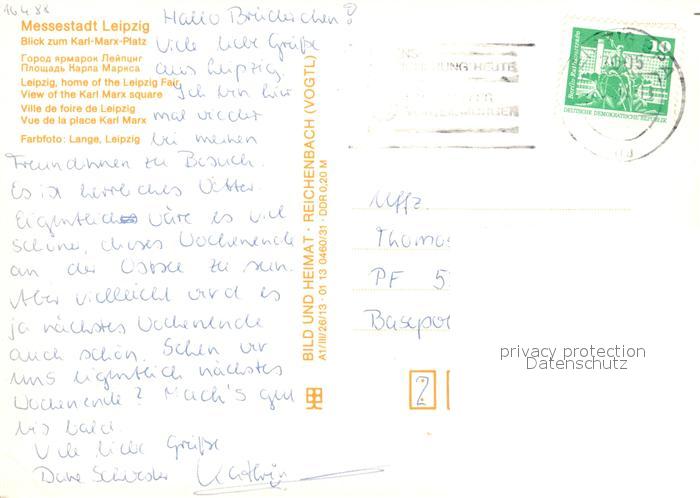 16488
Messestadt Leipzig
Blick zum Karl-Marx-Platz
Город ярмарок Лейпциг
Площадь Карла Маркса
Leipzig, home of the Leipzig Fair
View of the Karl Marx square
Ville de foire de Leipzig
Vue de la place Karl Marx
Farbfoto: Lange, Leipzig
Hallo Brüderchen!
Viele liebe Grüße
aus Leipzig.
Ich bin hier
mal wieder
bei meinen
Freundinnen zu Besuch.
Es ist herrliches Wetter.
Eigentlich wäre es viel
schöner, dieses Wochenende
an der Ostsee zu sein.
Aber vielleicht wird es
ja nächstes Wochenende
auch schön. Sehen wir
uns eigentlich nächstes
Wochenende? Mach's gut
bis bald.
Viele liebe Grüße
Deine Schwester Kathrin
BILD UND HEIMAT · REICHENBACH (VOGTL)
A1/III/26/13 · 01 13 0460/31 · DDR 0,20 M
HEUTE
10
Berlin, Rathausstraße
DEUTSCHE DEMOKRATISCHE REPUBLIK
Uffz.
Thomas
PF 5
Basepo
2
privacy protection
Datenschutz